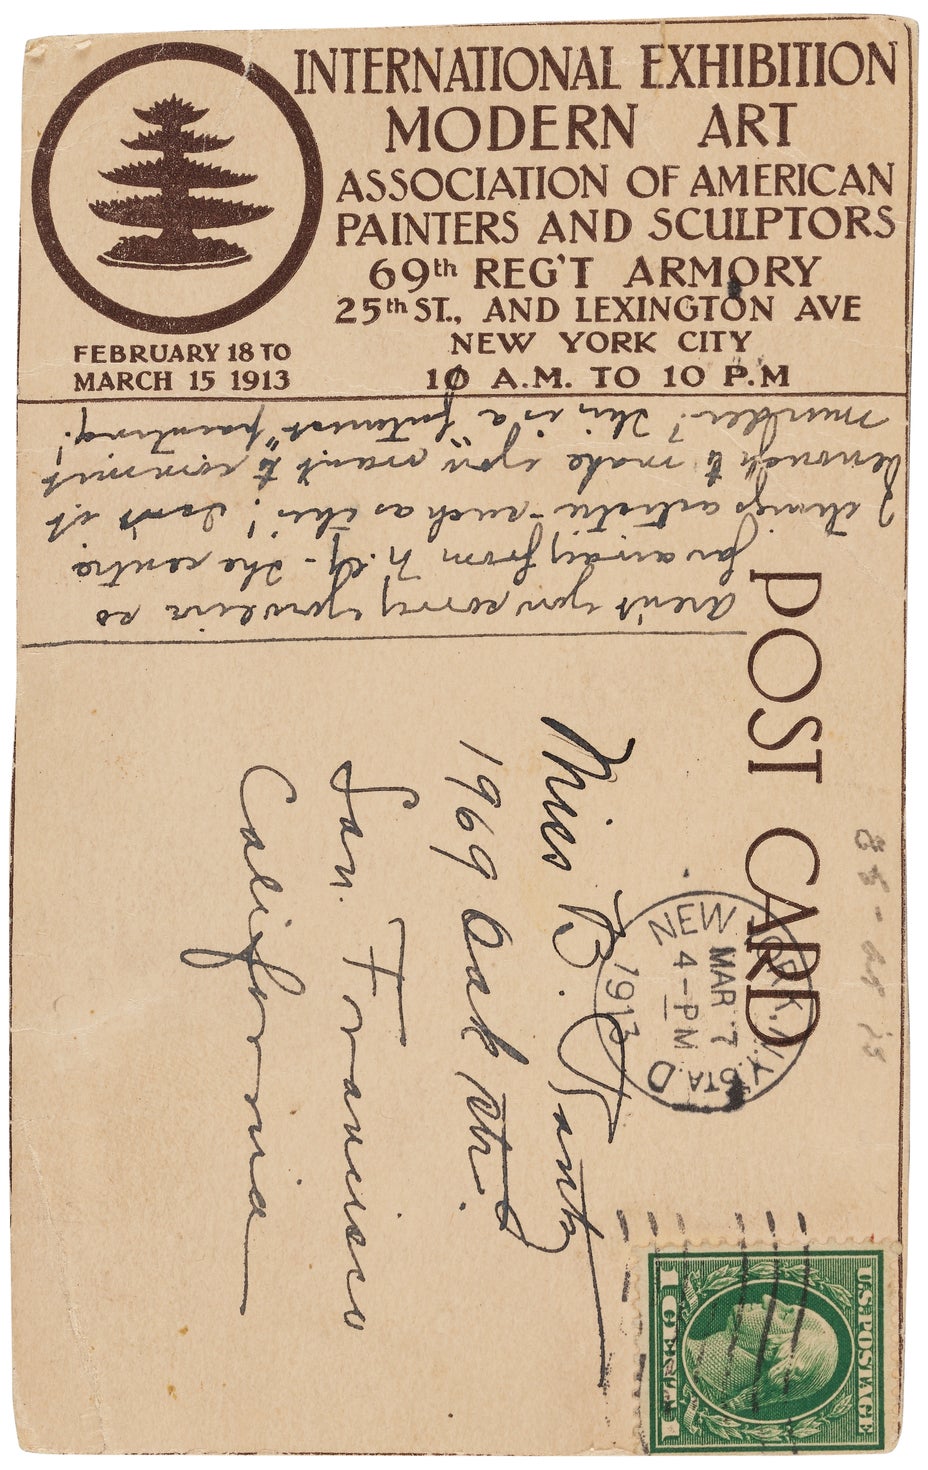 INTERNATIONAL EXHIBITION
MODERN ART
ASSOCIATION OF AMERICAN
PAINTERS AND SCULPTORS
69th REG'T ARMORY
25th ST., AND LEXINGTON AVE
NEW YORK CITY
10 A.M. TO 10 P.M
FEBRUARY 18 TO
MARCH 15 1913
Aren't you sorry you live so
far away from N.Y. - the centre
of things artistic - such as this! Isn't it
enough to make you want to commit
murder? This is a "futurist" painting!
POST CARD
NEW YORK, N.Y. STA. D
MAR 7
4-PM
1913
U.S. POSTAGE
1 CENT 1
Miss B.
1969 Oak Str.
San Francisco
California